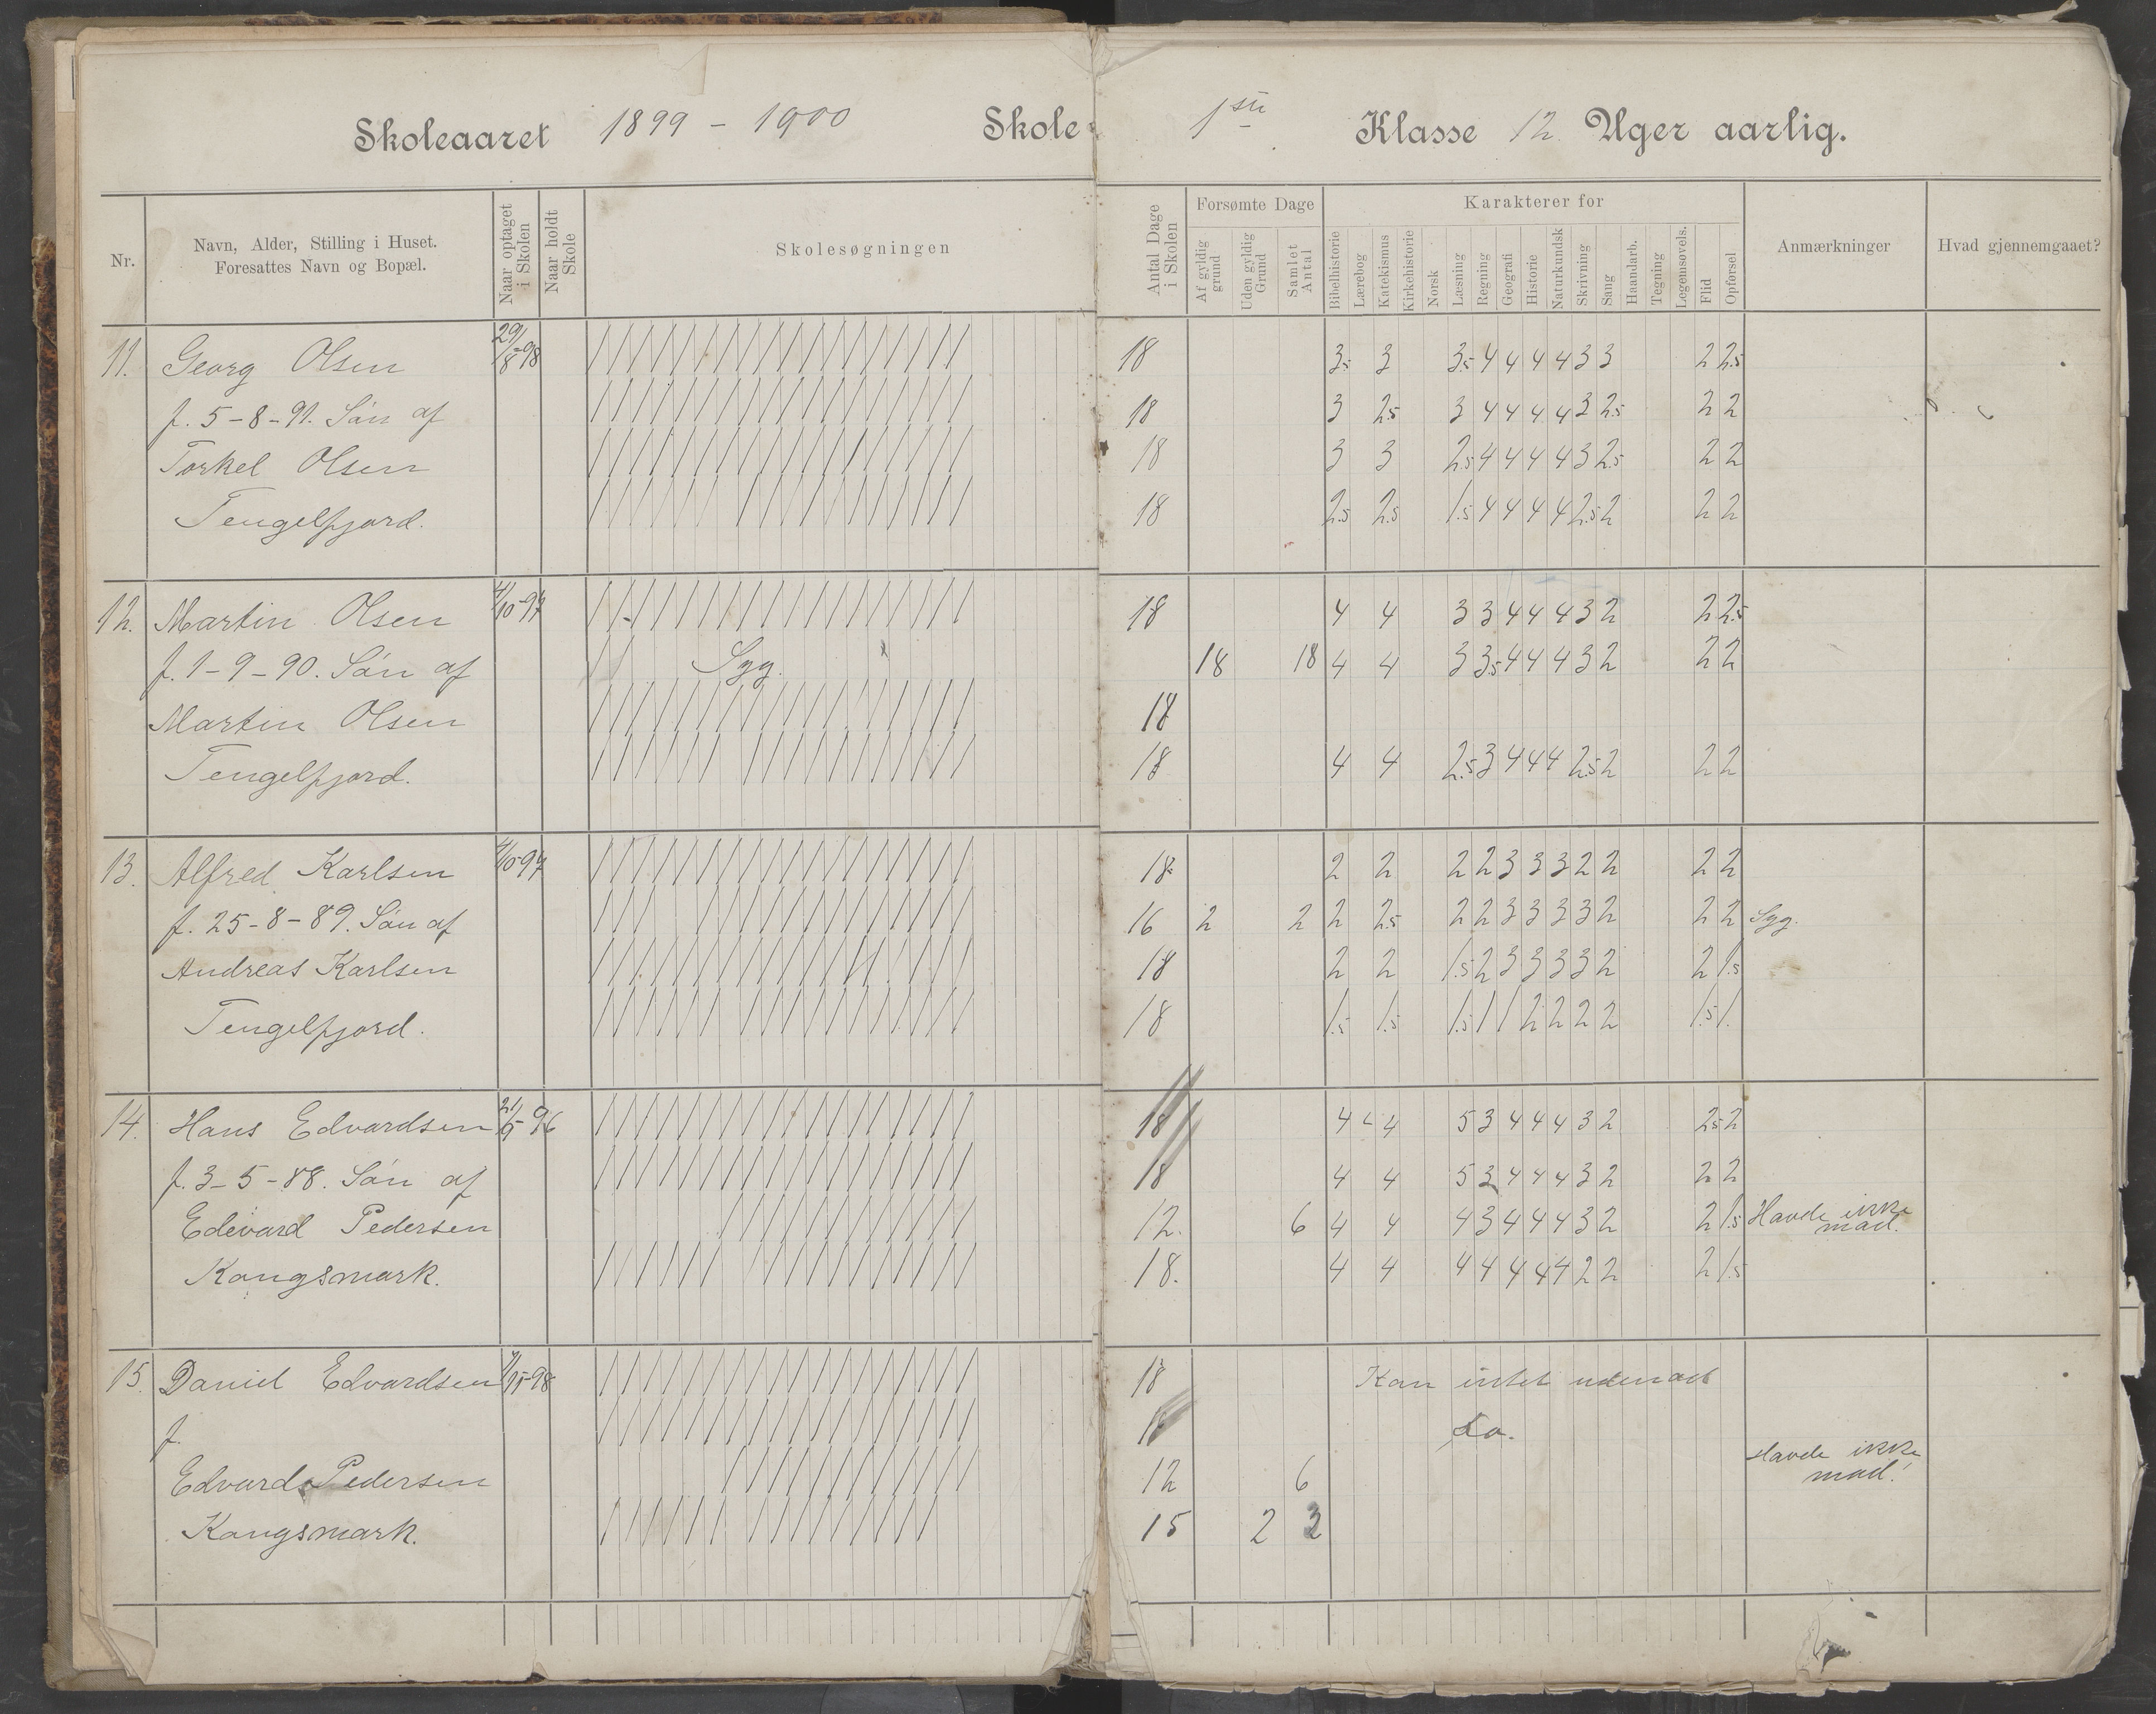 Skoleaaret 1899 - 1900 Skole 1ste Klasse 12 Uger aarlig.
Nr.
Navn, Alder, Stilling i Huset.
Foresattes Navn og Bopæl.
Naar optaget i Skolen
Naar holdt Skole
Skolesøgningen
Antal Dage i Skolen
Forsømte Dage
Af gyldig grund
Uden gyldig Grund
Samlet Antal
Karakterer for
Bibelhistorie
Lærebog
Katekismus
Kirkehistorie
Norsk
Læsning
Regning
Geografi
Historie
Naturkundsk
Skrivning
Sang
Haandarb.
Tegning
Legemsøvels.
Flid
Opførsel
Anmærkninger
Hvad gjennemgaaet?
11. Georg Olsen 29/8-98 18 3.5 3 3.5 4 4 4 4 3 3 2 2.5
f. 5-8-91. Søn af 18 3 2.5 3 4 4 4 4 3 2.5 2 2
Torkel Olsen 18 3 3 2.5 4 4 4 4 3 2.5 2 2
Tengelfjord. 18 2.5 2.5 1.5 4 4 4 4 2.5 2 2 2
12. Martin Olsen 4/10-97 18 4 4 3 3 4 4 4 3 2 2 2.5
f. 1-9-90. Søn af Syg. 18 18 4 4 3 3.5 4 4 4 3 2 2 2
Martin Olsen 18
Tengelfjord. 18 4 4 2.5 3 4 4 4 2.5 2 2 2
13. Alfred Karlsen 4/10-97 18 2 2 2 2 3 3 3 2 2 2 2
f. 25-8-89. Søn af 16 2 2 2 2.5 2 2 3 3 3 3 2 2 2 Syg.
Andreas Karlsen 18 2 2 1.5 2 3 3 3 3 2 2 1.5
Tengelfjord. 18 1.5 1.5 1.5 1 1 2 2 2 2 1.5 1.
14. Hans Edvardsen 21/9-96 18 4 4 5 3 4 4 4 3 2 2.5 2
f. 3-5-88. Søn af 18 4 4 5 3 4 4 4 3 2 2 2
Edevard Pedersen 12. 6 4 4 4 3 4 4 4 3 2 2 1.5 Havde ikke mad.
Kongsmark. 18. 4 4 4 4 4 4 4 2 2 2 1.5
15. Daniel Edvardsen 18 Kan intet udenad
f. Do.
Edvard Pedersen 12 6 Havde ikke mad.
Kongsmark. 15 2 3